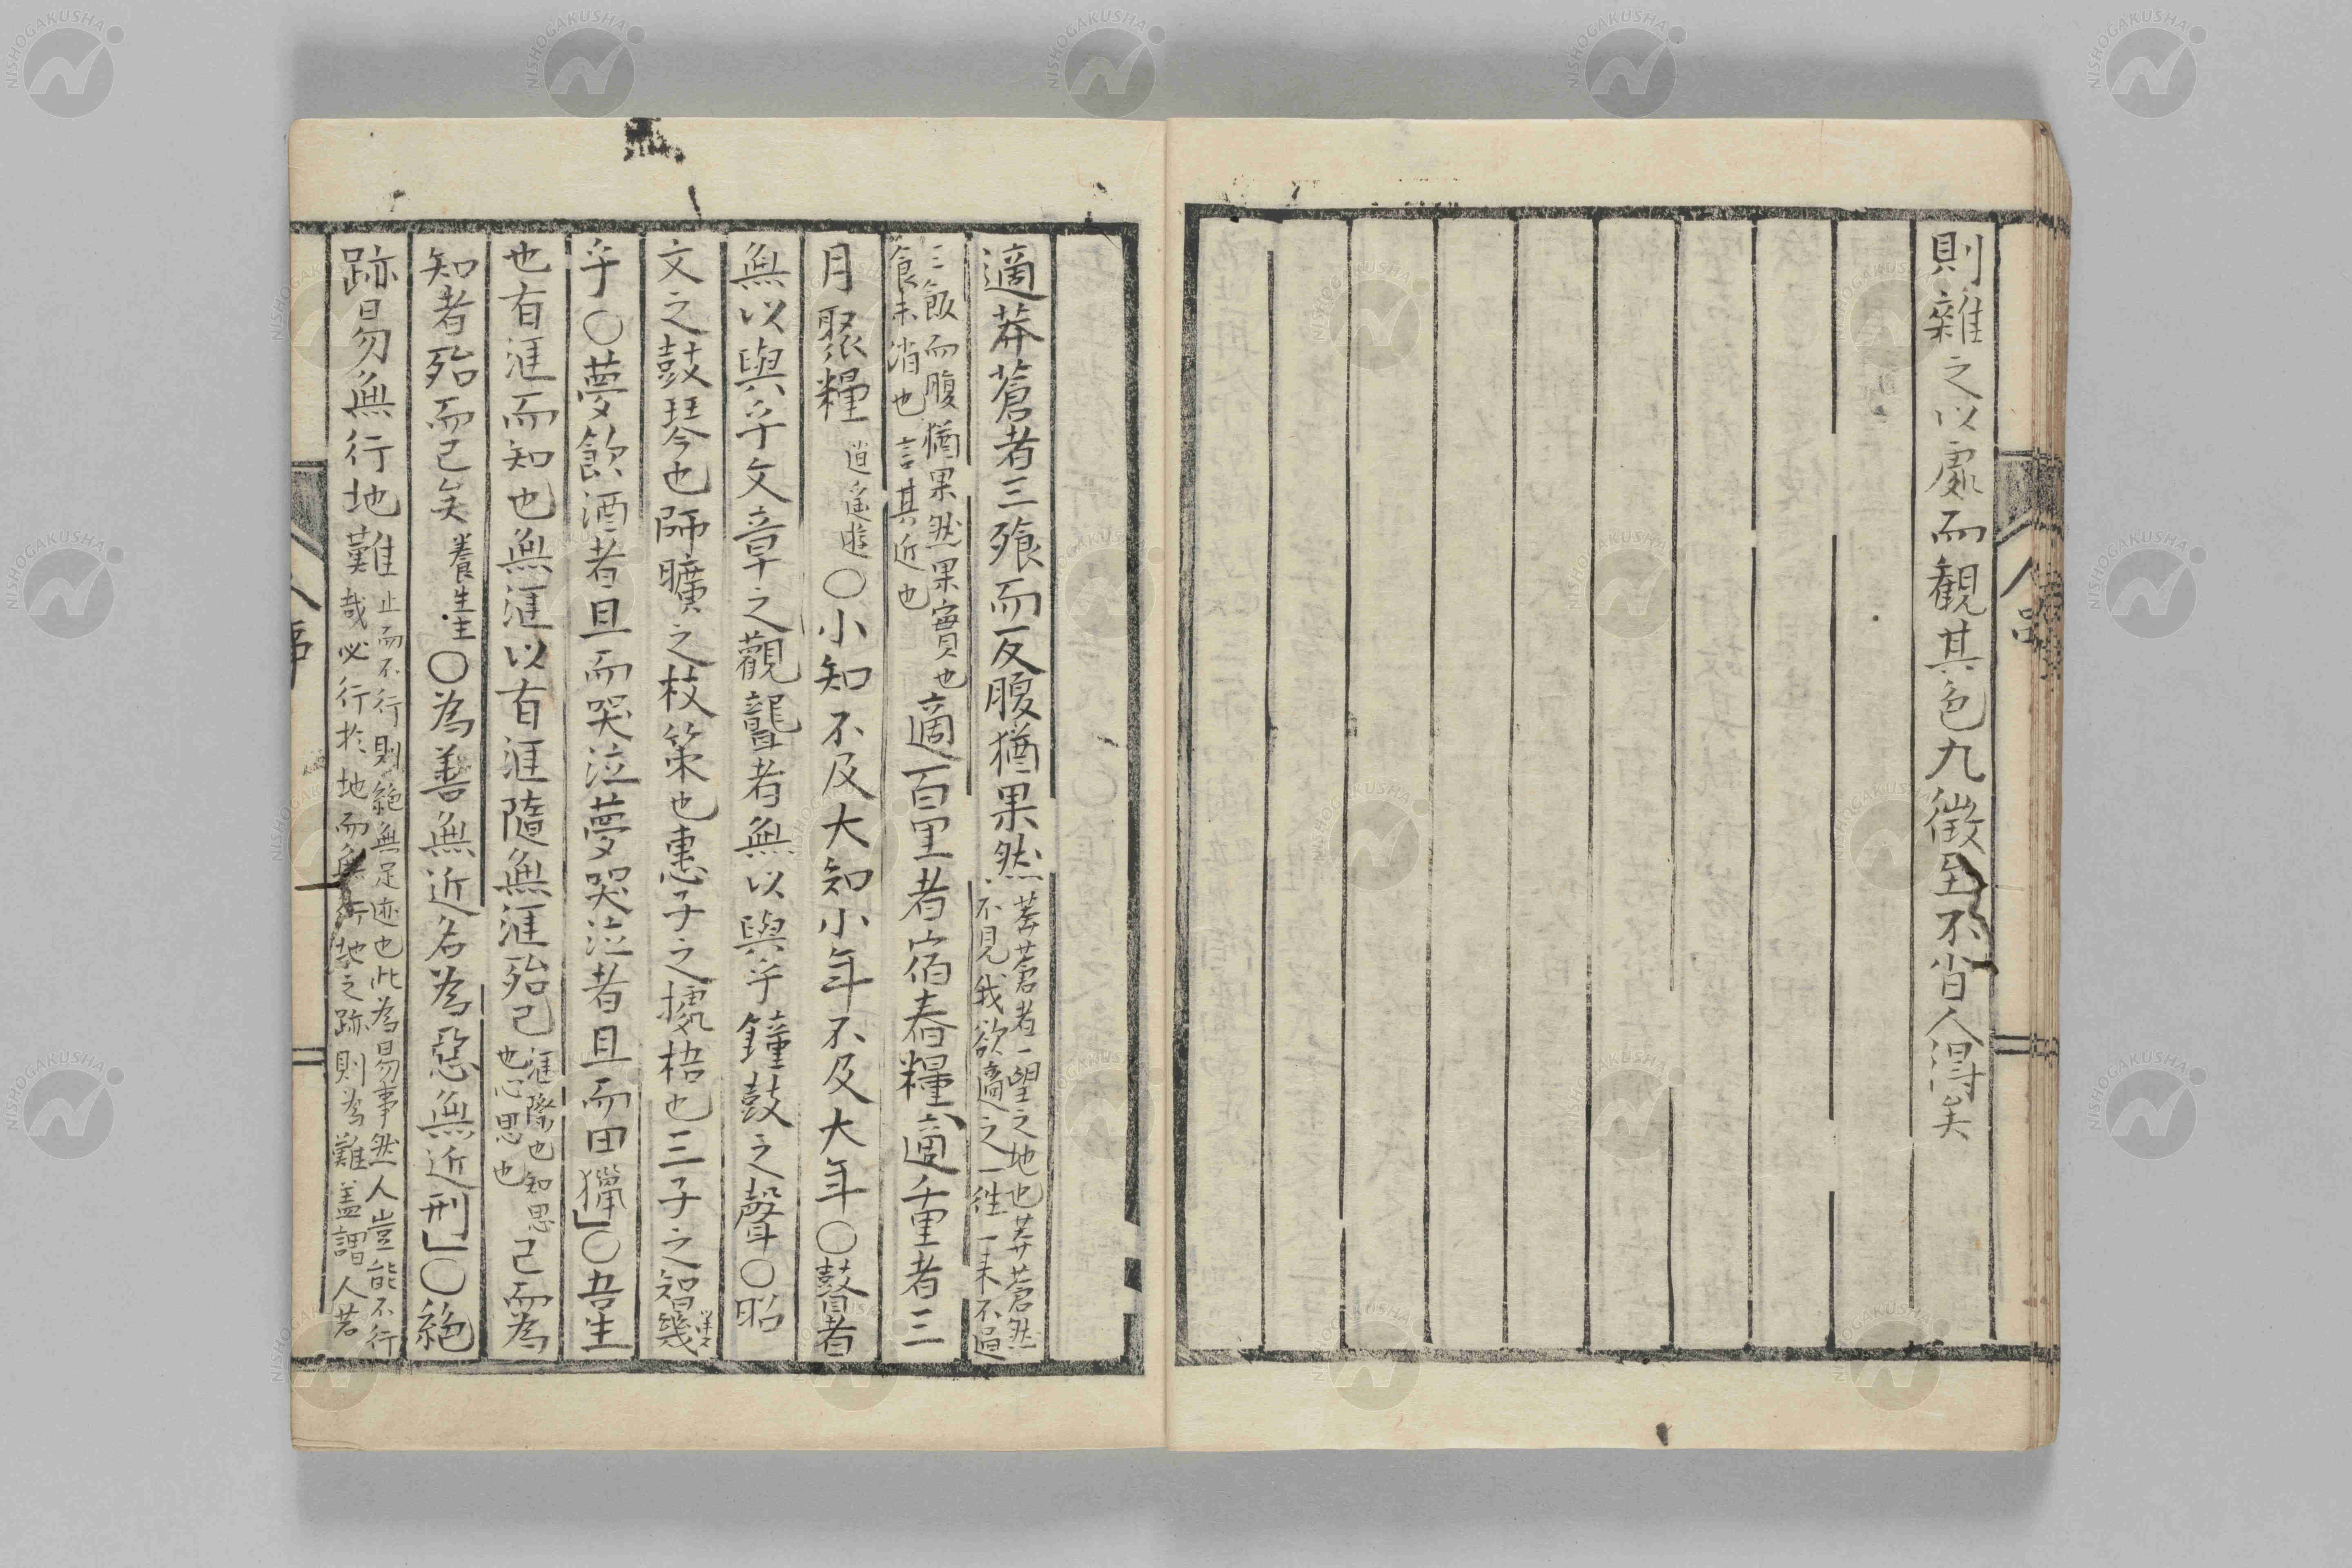 則雜之以處而觀其色九徵至不肖人得矣
人品
適莽蒼者三飱而反腹猶果然莽蒼者一望之地也莽蒼然
不見我欲適之一徃一来不過
三飯而腹猶果然果實也
食未消也言其近也
適百里者宿舂糧適千里者三
月聚糧逍遥遊〇小知不及大知小年不及大年〇瞽者
無以與乎文章之觀聾者無以與乎鐘鼓之聲〇昭
文之鼓琴也師曠之枝策也惠子之據梧也三子之智幾
乎〇夢飲酒者旦而哭泣夢哭泣者旦而田獵」〇吾生
也有涯而知也無涯以有涯隨無涯殆已涯際也知思
也心思也
已而為
知者殆而已矣養生主〇為善無近名為惡無近刑」〇絶
跡易無行地難止而不行則絶無足迹也此為易事然人豈能不行
哉必行於地而無行地之跡則為難盖謂人若
人事
NISHOGAKUSHA